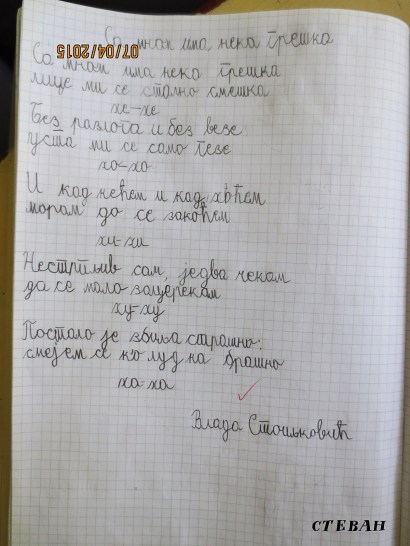 Са мном има нека грешка
07/04/2015
Са мном има нека грешка
лице ми се стално смешка
хе-хе
Без разлога и без везе
уста ми се само кезе
хо-хо
И кад нећем и кад хоћем
морам да се закоћем
хи-хи
Нестрпљив сам, једва чекам
да се мало зацерекам
ху-ху
Постало је збиља страшно:
смејем се ко луд на брашно
ха-ха
Влада Стоиљковић
СТЕВАН